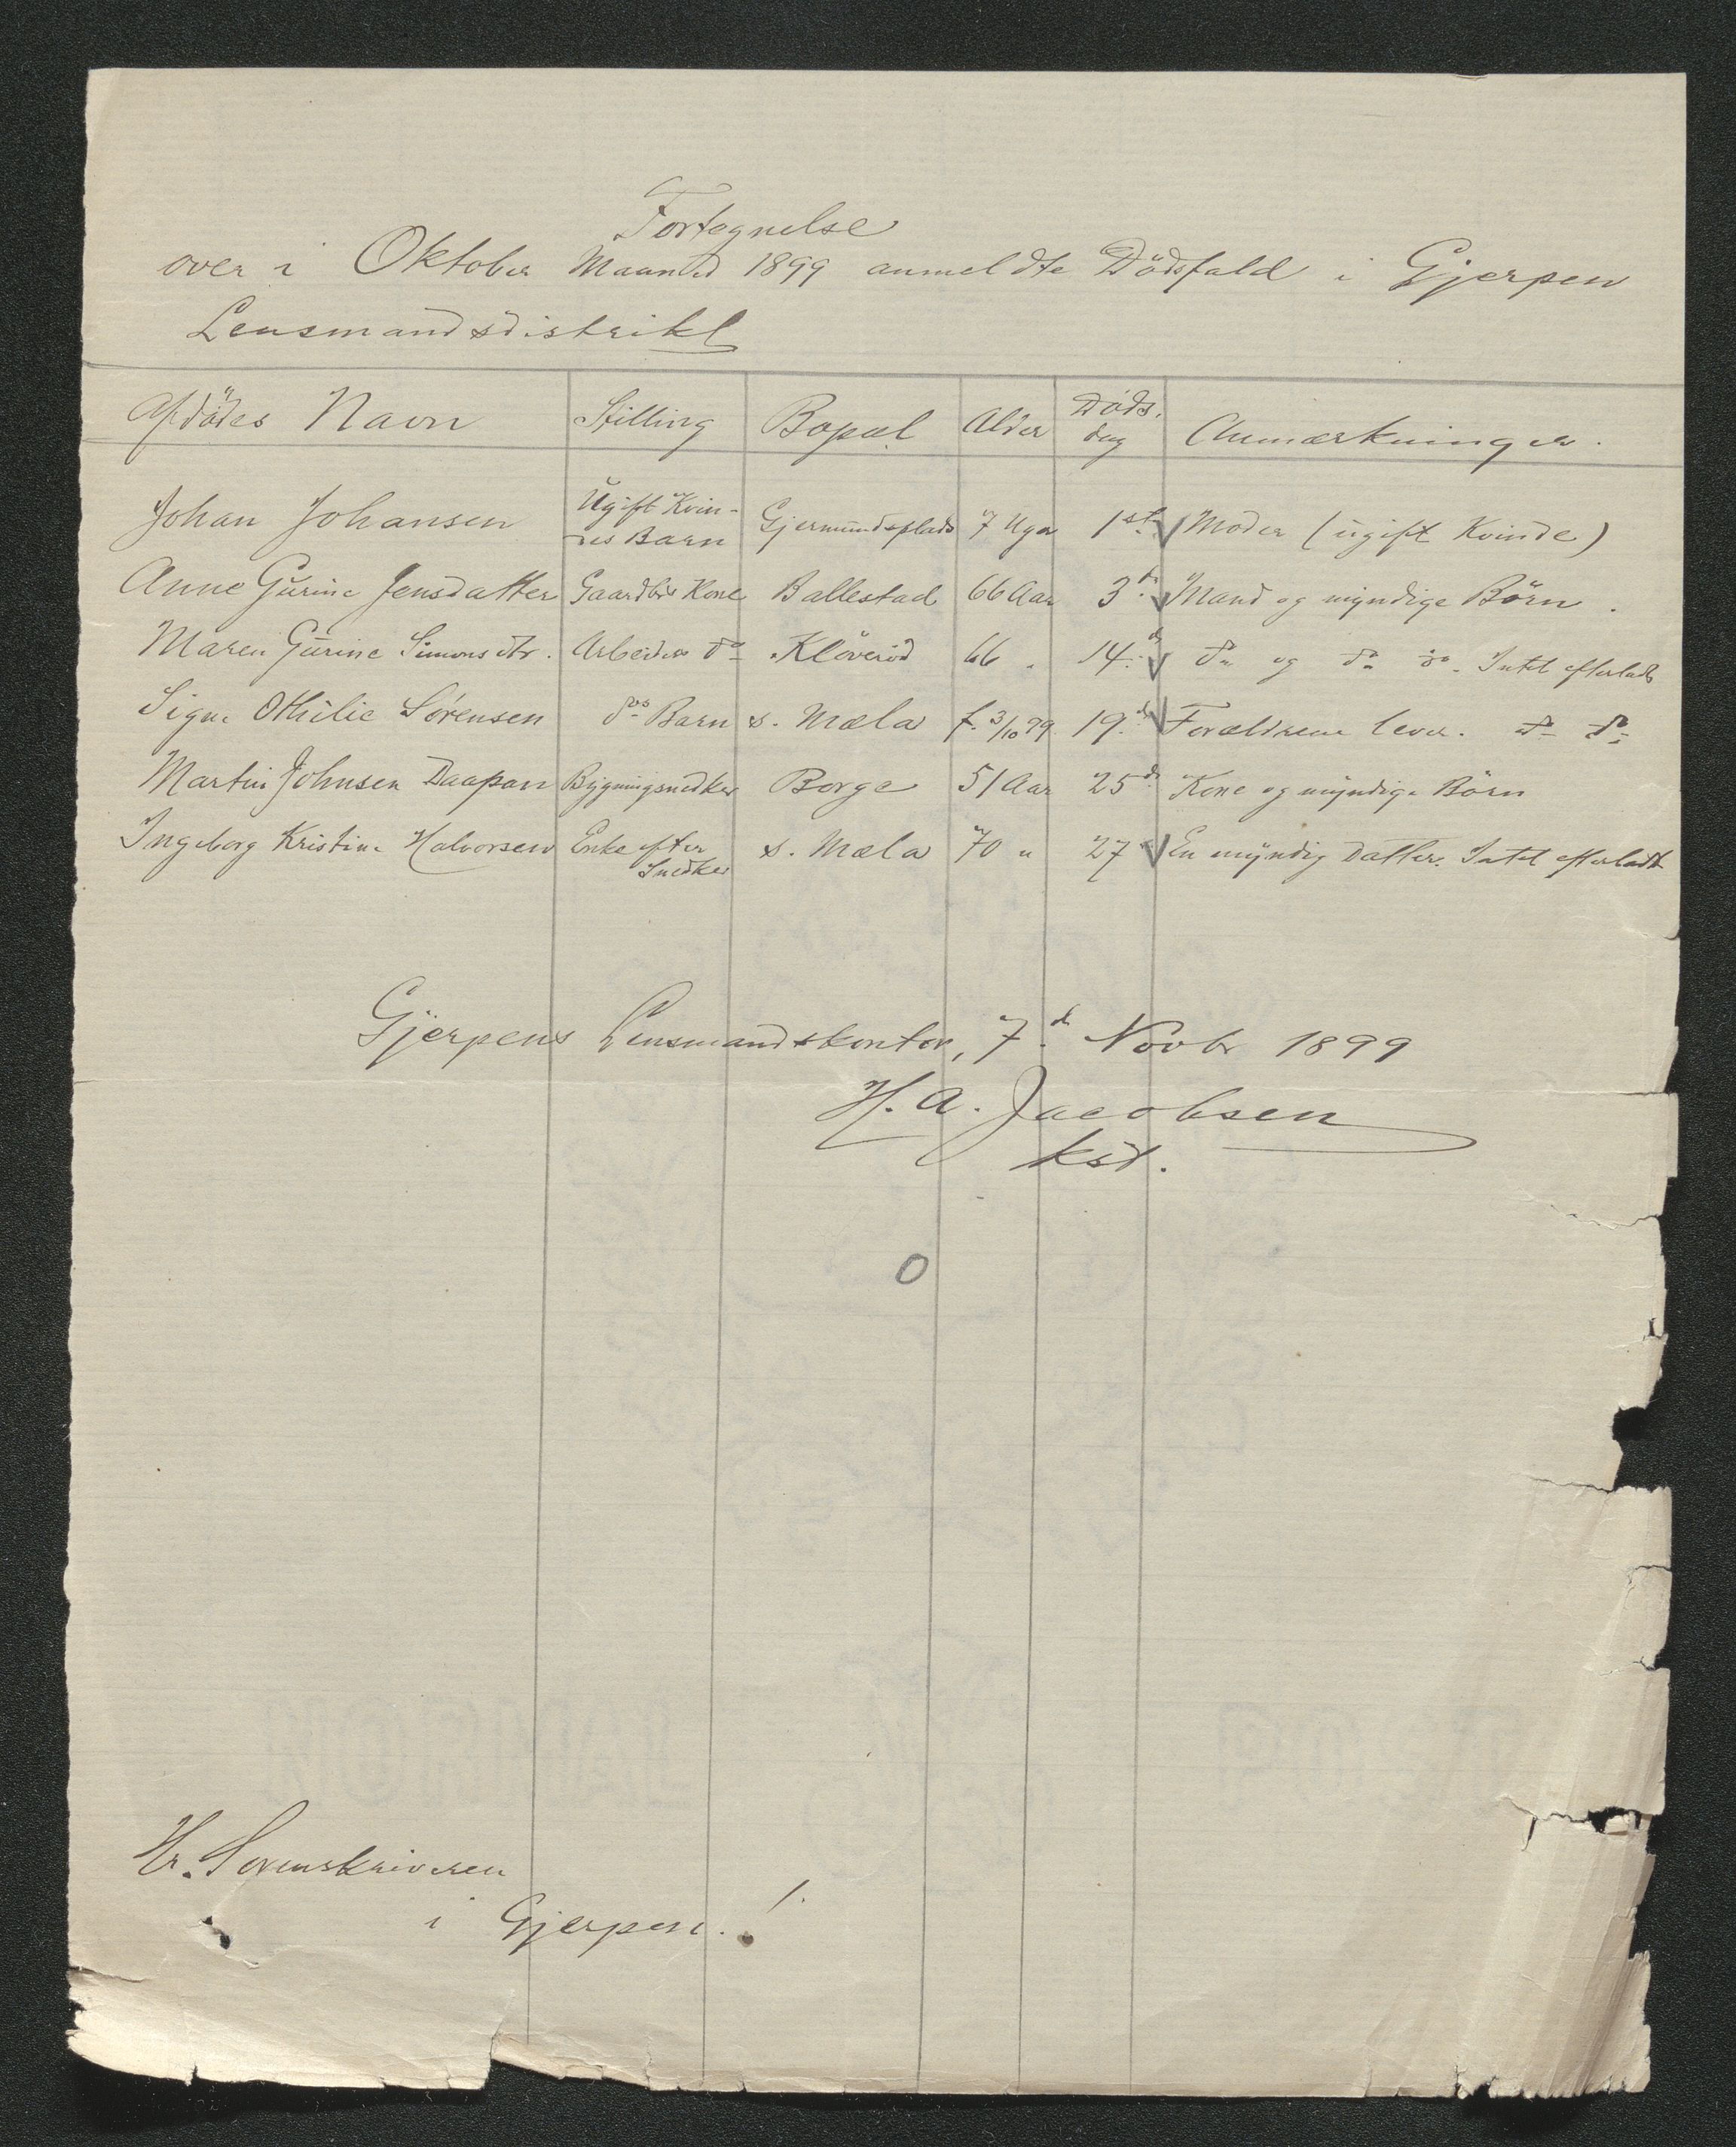 Fortegnelse
over i Oktober Maaned 1899 anmeldte Dödsfald i Gjerpen
Lensmandsdistrikt
Afdödes Navn Stilling Bopæl Alder Döds. dag Anmærkninger.
Johan Johansen Ugift Kvin-des Barn Gjermundsplads 7 Uger 1ste Moder (ugift Kvinde)
Anne Gurine Jensdatter Gaardbrs Kone Ballestad 66 Aar 3de Mand og myndige Börn.
Maren Gurine Simonsdtr. Arbeiders do Kløverød 66 " 14de do og do do. Intet efterladt
Signe Othilie Sörensen dos Barn s. Mæla f. 3/10 99 19de Forældrene lever. do do
Martin Johnsen Daapan Bygningsnedker Borge 51 Aar 25de Kone og myndige Börn
Ingeborg Kristine Halvorsen Enke efter Snedker s. Mæla 70 " 27de En myndig Datter. Intet efterladt
Gjerpens Lensmandskontor, 7de Novbr 1899
H. A. Jacobsen
kst.
0
Hr. Sorenskriveren
i Gjerpen. !